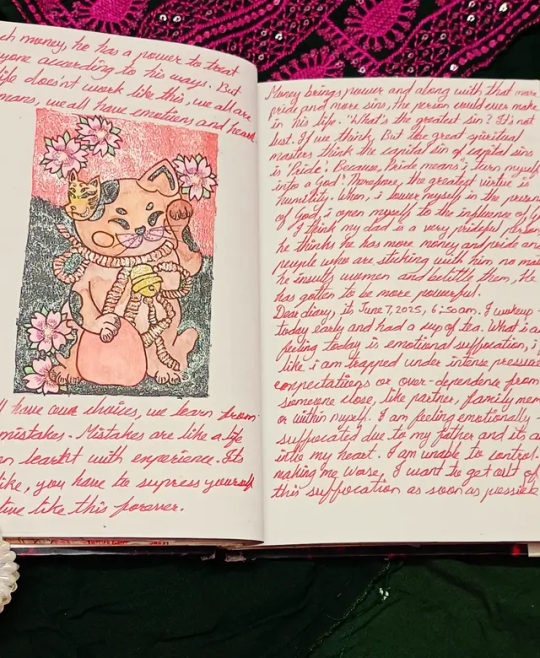 ch money, he has a power to treat
yone according to his ways. But
life doesn't work like this, we all are
mans, we all have emotions and heart.
l have our choices, we learn from
mistakes. Mistakes are like a life
n learnt with experience. Its
like, you have to supress yourself
live like this forever.
Money brings power and along with that more
pride and more sins, the person could ever make
in his life. "What's the greatest sin? It's not
lust. If we think, But the great spiritual
masters think the capital sin of capital sins
is 'Pride'. Because, Pride means 'i turn myself
into a God'. Therefore, the greatest virtue is
humility. When, i lower myself in the presen
of God, i open myself to the influence of G
I think my dad is a very prideful person
he thinks he has more money and pride and
people who are sticking with him no ma
he insults women and belittle them, He
has gotten to be more powerful.
Dear diary, its June 7, 2025, 6:50am. I wakeup
today early and had a cup of tea. What i a
feeling today is emotional suffocation, i f
like i am trapped under intense pressur
expectations or over-dependence from
someone close, like partner, family mem
or within myself. I am feeling emotionally
suffocated due to my father and its a
into my heart. I am unable to control.
making me worse, I want to get out of
this suffocation as soon as possible